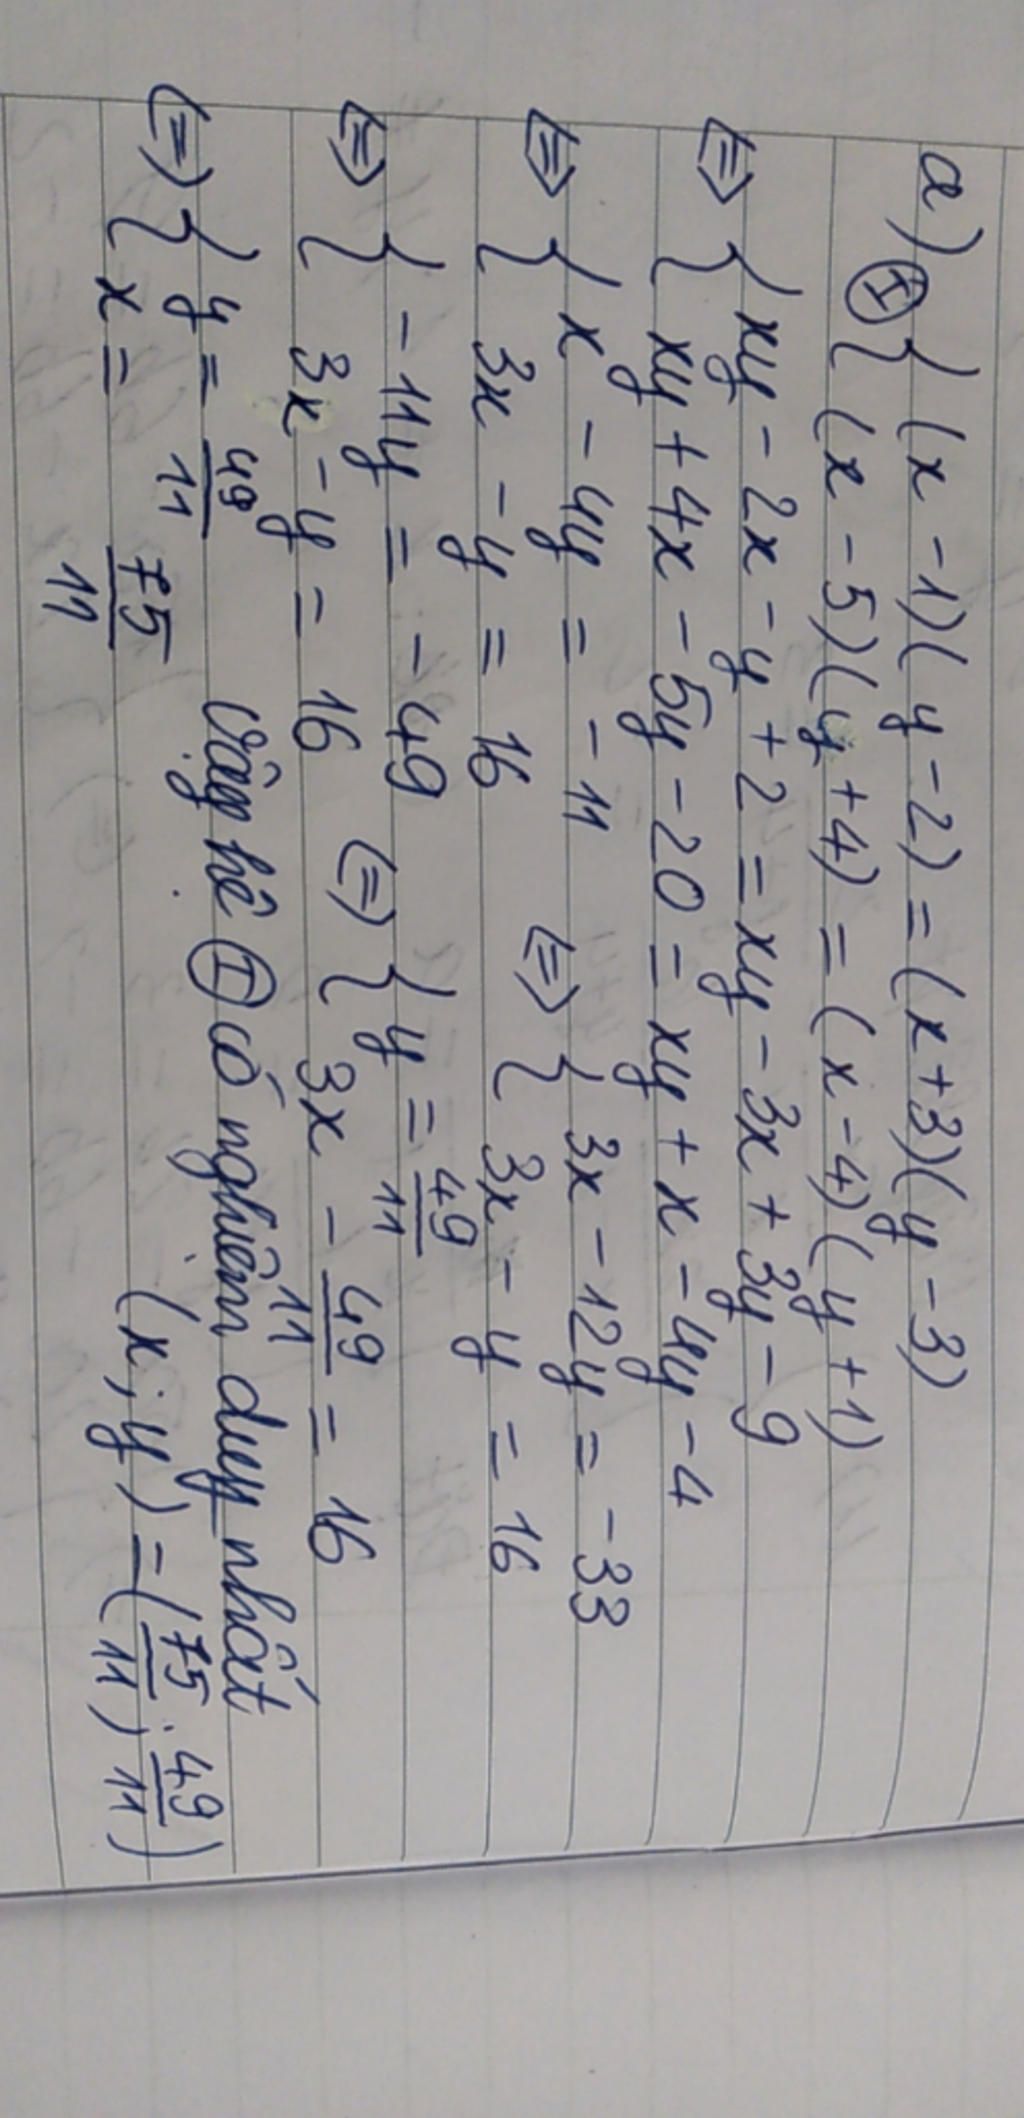 a) (I) { (x - 1)(y - 2) = (x + 3)(y - 3)
(x - 5)(y + 4) = (x - 4)(y + 1)
<=> { xy - 2x - y + 2 = xy - 3x + 3y - 9
xy + 4x - 5y - 20 = xy + x - 4y - 4
<=> { x - 4y = - 11 <=> { 3x - 12y = - 33
3x - y = 16 3x - y = 16
<=> { - 11y = - 49 <=> { y = 49/11
3x - y = 16 3x - 49/11 = 16
<=> { y = 49/11 Vậy hệ (I) có nghiệm duy nhất
x = 75/11 (x; y) = (75/11; 49/11)